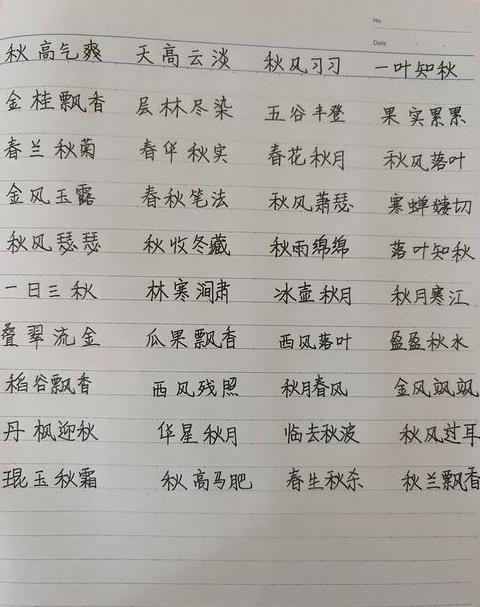 No.
Date
秋高气爽 天高云淡 秋风习习 一叶知秋
金桂飘香 层林尽染 五谷丰登 果实累累
春兰秋菊 春华秋实 春花秋月 秋风落叶
金风玉露 春秋笔法 秋风萧瑟 寒蝉凄切
秋风瑟瑟 秋收冬藏 秋雨绵绵 落叶知秋
一日三秋 林寒涧肃 冰壶秋月 秋月寒江
叠翠流金 瓜果飘香 西风落叶 盈盈秋水
稻谷飘香 西风残照 秋月春风 金风飒飒
丹枫迎秋 华星秋月 临去秋波 秋风过耳
琨玉秋霜 秋高马肥 春生秋杀 秋兰飘香